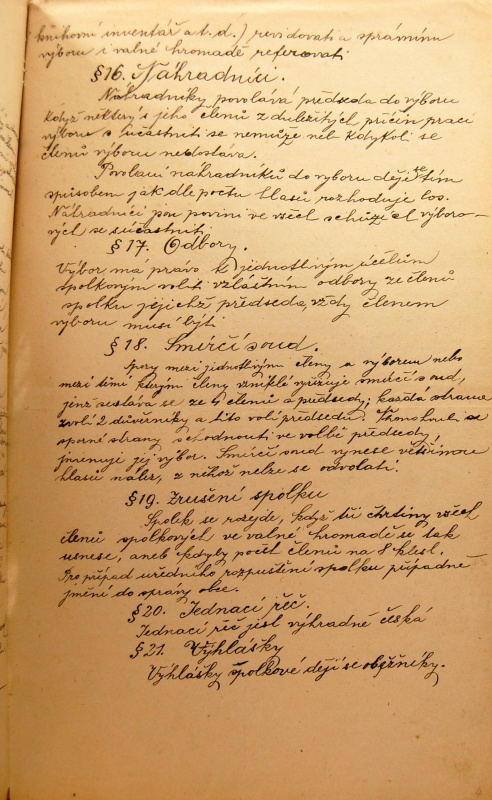 knihovní inventář a t. d.) revidovati a správními
výboru i valné hromadě referovati
§16. Náhradníci.
Náhradníky povolává předseda do výboru
když některý z jeho členů z důležitých příčin prací
výboru súčastniti se nemůže neb kdykoli se
členů výboru nedostává.
Povolání náhradníků do výboru děje se tím
způsobem jak dle počtu hlasů rozhoduje los.
Náhradníci jsou povinni ve všech schůzích výboro-
vých se súčastniti
§17. Odbory.
Výbor má právo k jednotlivým účelům
spolkovým voliti vzláštním odbory ze členů
spolku jejichž předseda, vždy členem
výboru musí býti
§18. Smírčí soud.
Spory mezi jednotlivými členy a výborem nebo
mezi těmi kterými členy vzniklé vyřizuje smírčí soud,
jenž sestává se ze 4 členů a předsedy; každá strana
zvolí 2 důvěrníky a tito volí předsedu.
sporné strany se hodnouti ve volbě předsedy
jmenuje jej výbor. Smírčí soud vynese většinou
hlasů nález, z něhož nelze se odvolati.
§19. Zrušení spolku
Spolek se rozejde, když tři čtvrtiny všech
členů spolkových ve valné hromadě se tak
usnese, aneb kdyby počet členů na 8 klesl.
Pro případ uředního rozpuštění spolku připadne
jmění do správy obce.
§20. Jednací řeč.
Jednací řeč jest výhradně česká
§21. Vyhlášky
Vyhlášky spolkové dějí se oběžníky.